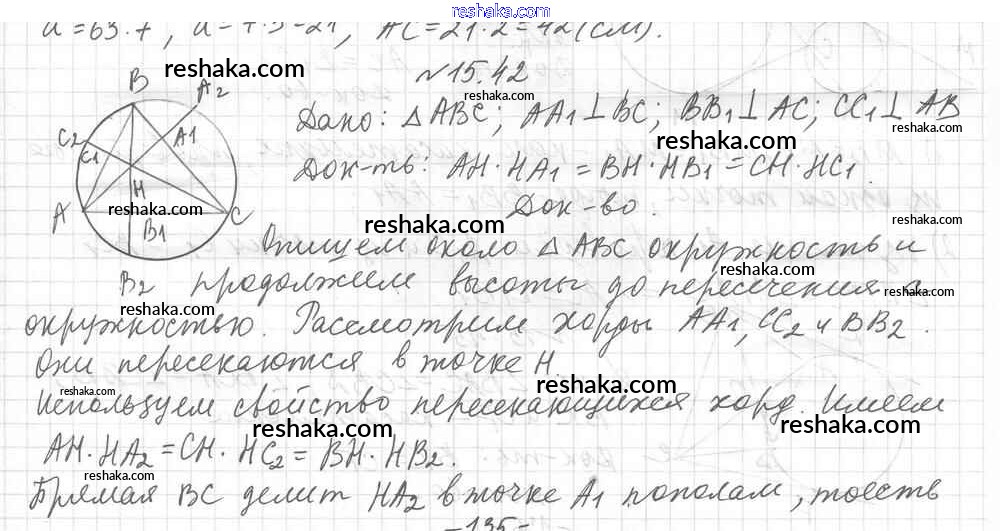 reshaka.com
a=63:7, a=7·3=21, AC=21·2=42(см).
№15.42
reshaka.com
B A2
C2 C1 A1
H
A C
B1
B2
reshaka.com
Дано: △ABC; AA1⊥BC; BB1⊥AC; CC1⊥AB
reshaka.com
reshaka.com
Док-ть: AH·HA1=BH·HB1=CH·HC1.
reshaka.com
Док-во.
reshaka.com
reshaka.com
Опишем около △ABC окружность и
reshaka.com
продолжим высоты до пересечения с
reshaka.com
reshaka.com
окружностью. Рассмотрим хорды AA1, CC2 и BB2.
Они пересекаются в точке H.
reshaka.com
reshaka.com
Используем свойство пересекающихся хорд. Имеем
reshaka.com
reshaka.com
AH·HA2=CH·HC2=BH·HB2.
reshaka.com
Прямая BC делит HA2 в точке A1 пополам, тоесть
reshaka.com
-135-